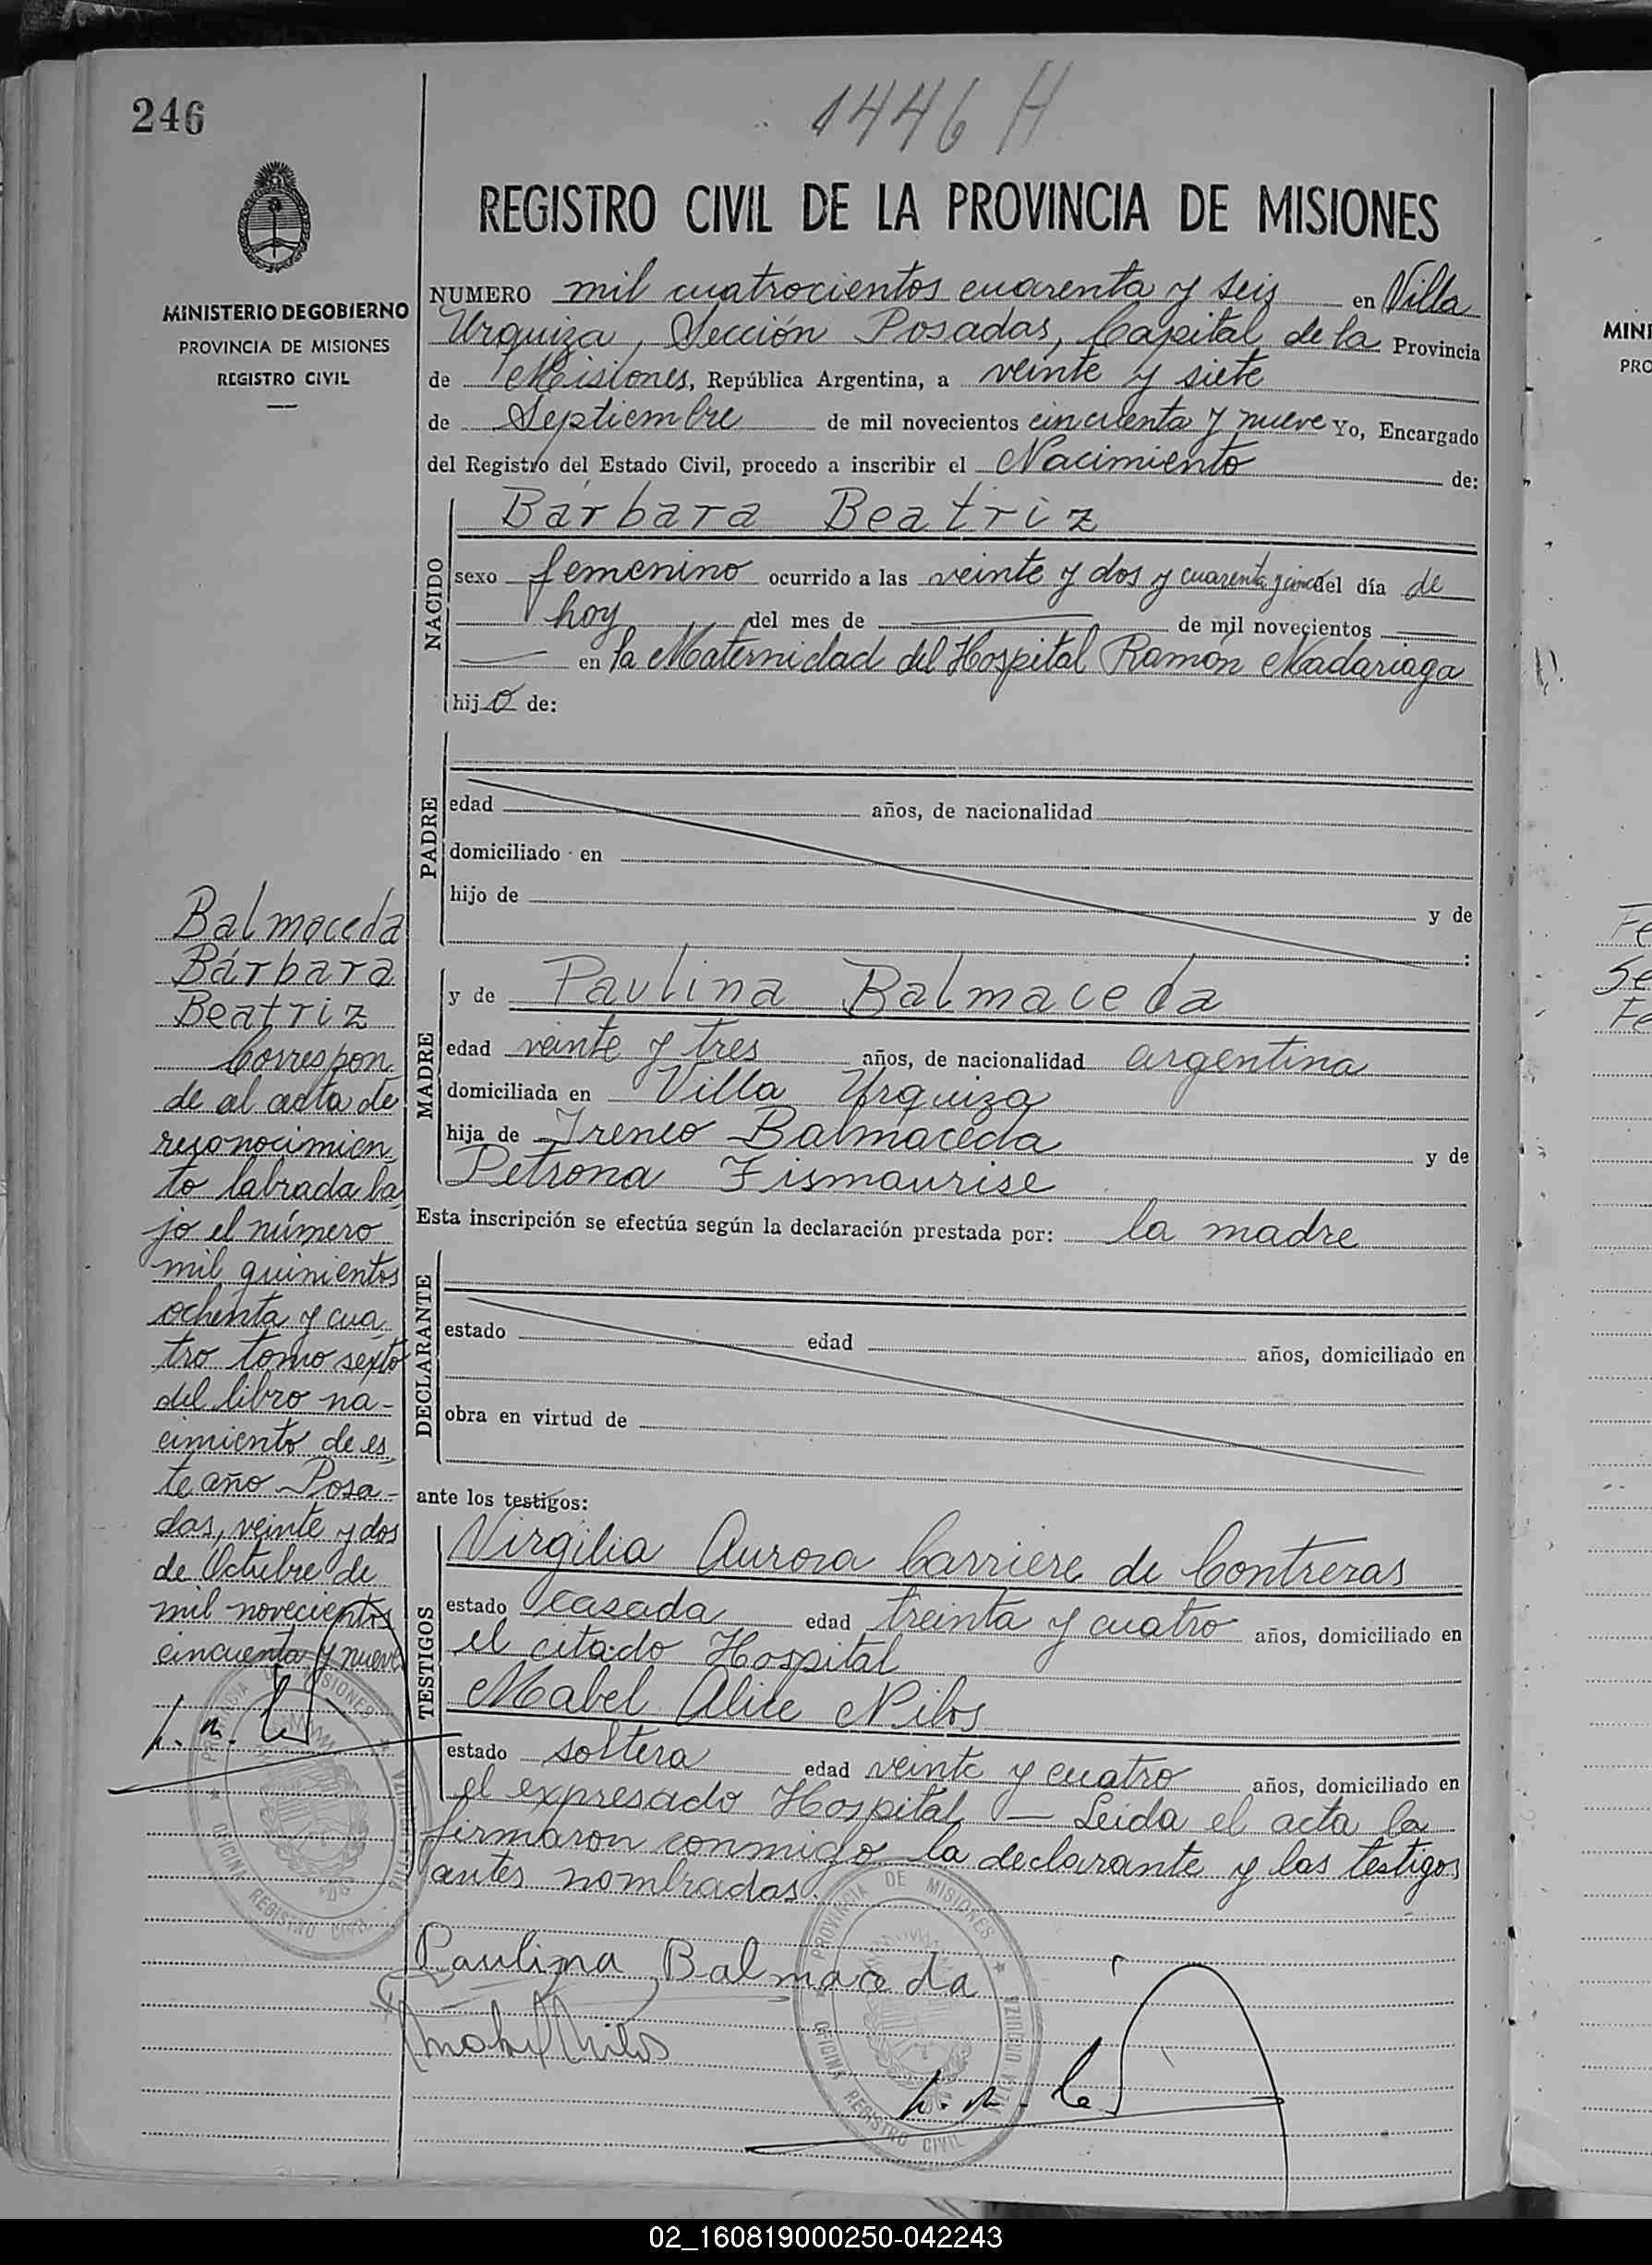 246
1446 H
REGISTRO CIVIL DE LA PROVINCIA DE MISIONES
MINISTERIO DE GOBIERNO
PROVINCIA DE MISIONES
REGISTRO CIVIL
NUMERO mil cuatrocientos cuarenta y seis en Villa
Urquiza, Sección Posadas, Capital de la Provincia
de Misiones, República Argentina, a veinte y siete
de Septiembre de mil novecientos cincuenta y nueve Yo, Encargado
del Registro del Estado Civil, procedo a inscribir el Nacimiento de:
NACIDO
Bárbara Beatriz
sexo femenino ocurrido a las veinte y dos y cuarenta y cinco del día de
hoy del mes de de mil novecientos
en la Maternidad del Hospital Ramón Madariaga
hij o de:
PADRE
edad años, de nacionalidad
domiciliado en
hijo de y de
:
MADRE
y de Paulina Balmaceda
edad veinte y tres años, de nacionalidad argentina
domiciliada en Villa Urquiza
hija de Ireneo Balmaceda y de
Petrona Fismaurise
Esta inscripción se efectúa según la declaración prestada por: la madre
DECLARANTE
estado edad años, domiciliado en
obra en virtud de
ante los testigos:
TESTIGOS
Virgilia Aurora Carriere de Contreras
estado casada edad treinta y cuatro años, domiciliado en
el citado Hospital
Mabel Alice Nilos
estado soltera edad veinte y cuatro años, domiciliado en
el expresado Hospital — Leida el acta la
firmaron conmigo la declarante y las testigos
antes nombradas.
Paulina Balmaceda
Mabel Nilos
PROVINCIA DE MISIONES
VILLA URQUIZA
OFICINA REGISTRO CIVIL
Balmaceda
Bárbara
Beatriz
Correspon
de al acta de
reconocimien
to labrada ba
jo el número
mil quinientos
ochenta y cua
tro tomo sexto
del libro na-
cimiento de es
te año Posa-
das, veinte y dos
de Octubre de
mil novecientos
cincuenta y nueve
PROVINCIA MISIONES
VILLA
OFICINA REGISTRO CIVIL
MINI
PRO
Fe
Se
Fe
02_160819000250-042243